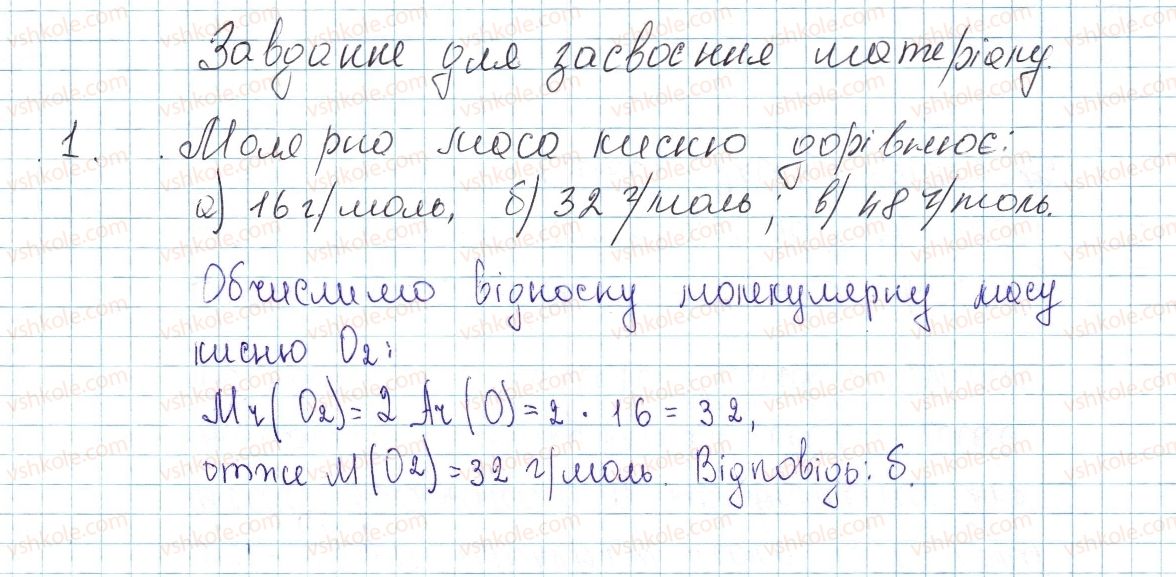 Завдання для засвоєння матеріалу.
1. Молярна маса кисню дорівнює:
а) 16 г/моль, б) 32 г/моль; в) 48 г/моль.
Обчислимо відносну молекулярну масу
кисню O2:
Mr(O2)=2 Ar(O)=2·16=32,
отже M(O2)=32 г/моль. Відповідь: б.